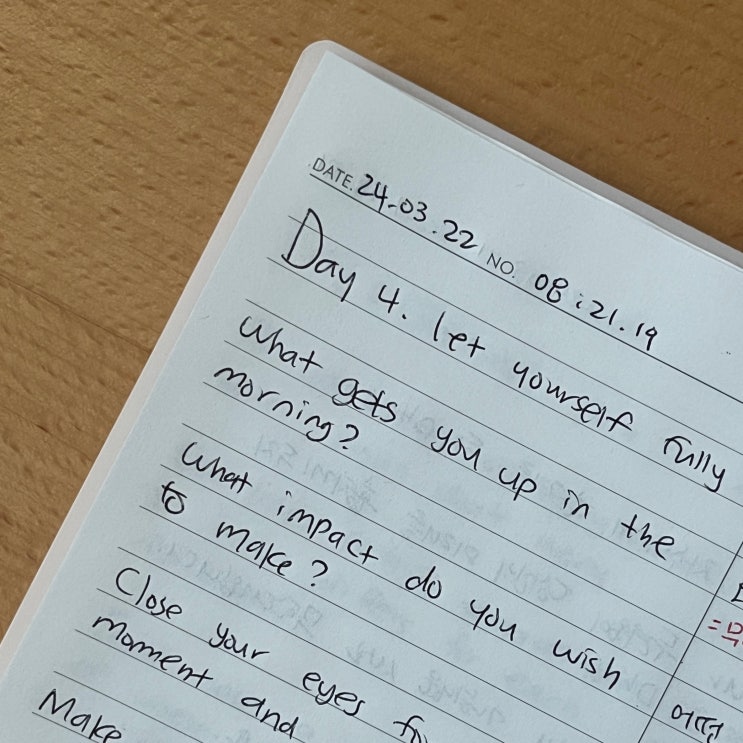 DATE. 24.03.22 NO. 08:21.19
Day 4. let yourself fully
What gets you up in the
morning?
What impact do you wish
to make?
Close your eyes
moment and
Make
어떤